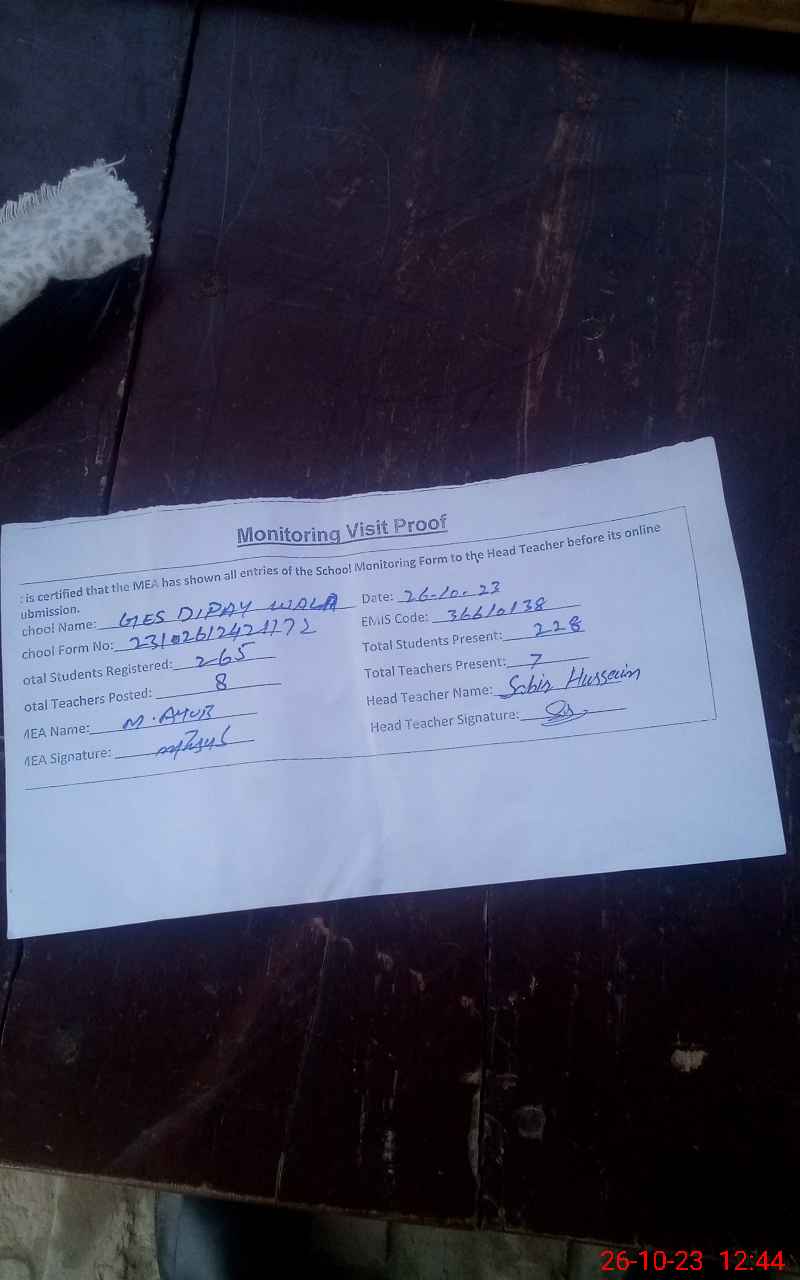 Monitoring Visit Proof
: is certified that the MEA has shown all entries of the School Monitoring Form to the Head Teacher before its online
ubmission.
chool Name: GES DIPAY WALA Date: 26-10-23
chool Form No: EMIS Code: 36610138
otal Students Registered: 265 Total Students Present: 228
otal Teachers Posted: 8 Total Teachers Present: 7
MEA Name: M. AYUB Head Teacher Name: Sabir Hussain
MEA Signature: Head Teacher Signature:
26-10-23 12:44